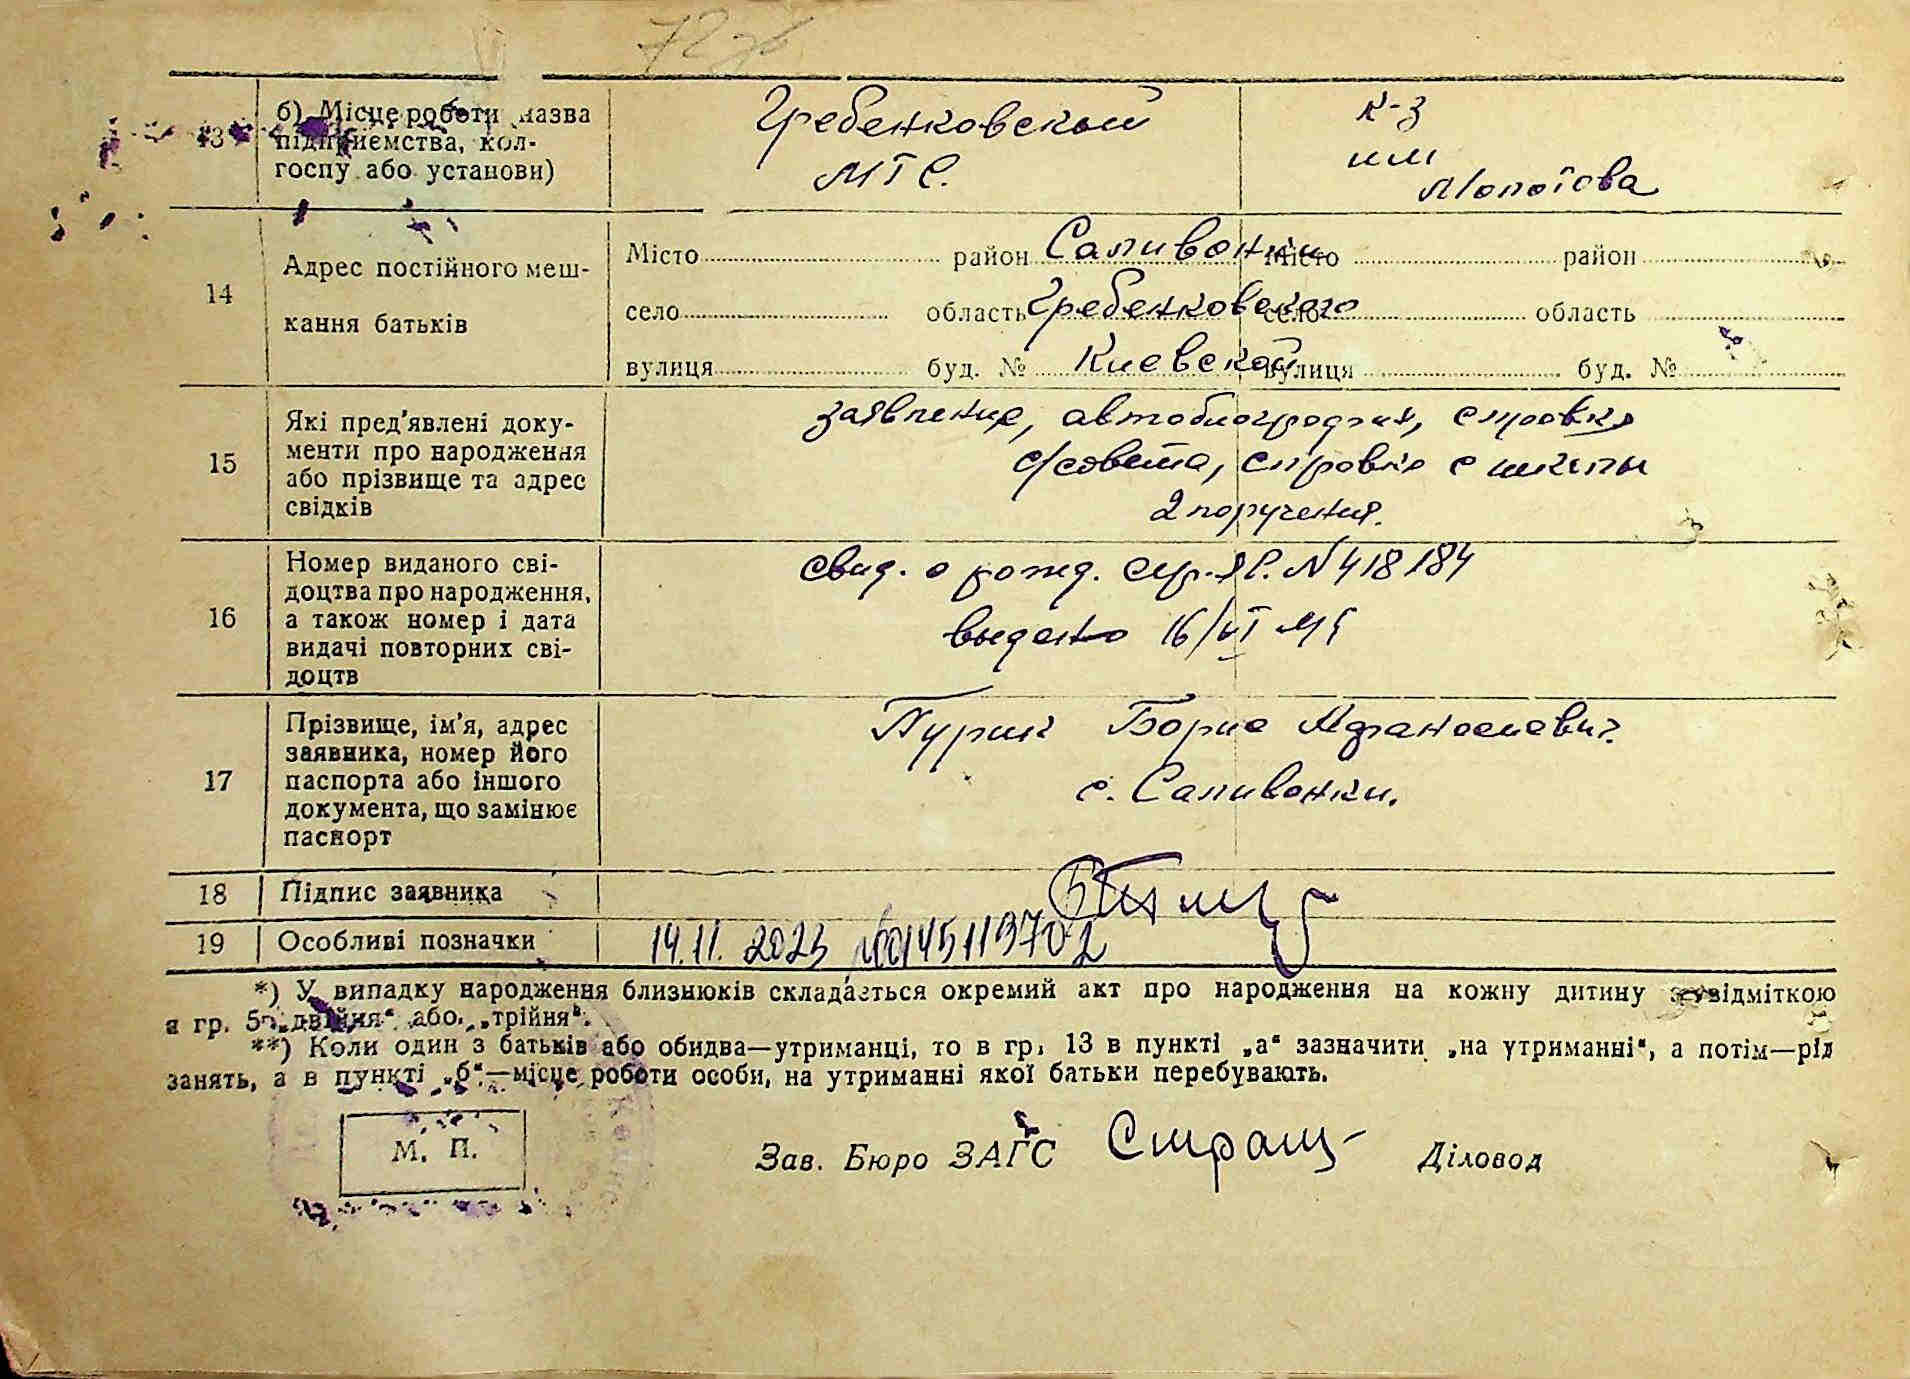 13 б) Місце роботи назва Гребенковский к-з
підприємства, кол- МТС. им
госпу або установи) Молотова
14 Адрес постійного меш- Місто район Саливонки Місто район
кання батьків село область Гребенковского село область
вулиця буд. № Киевской вулиця буд. №
15 Які пред'явлені доку- заявление, автобиография, справка
менти про народження с/совета, справка с школы
або прізвище та адрес 2 поручения.
свідків
16 Номер виданого сві- свид. о рожд. сер. № 418184
доцтва про народження, выдано 16/VI
а також номер і дата
видачі повторних сві-
доцтв
17 Прізвище, ім'я, адрес Борис Афанасиевич
заявника, номер його с. Саливонки.
паспорта або іншого
документа, що замінює
паспорт
18 Підпис заявника
19 Особливі позначки 14.11.2023 №00145113702
*) У випадку народження близнюків складається окремий акт про народження на кожну дитину з відміткою
в гр. 5 „двійня“ або „трійня“.
**) Коли один з батьків або обидва—утриманці, то в гр. 13 в пункті „а“ зазначити „на утриманні“, а потім—рід
занять, а в пункті „б“—місце роботи особи, на утриманні якої батьки перебувають.
М. П.
Зав. Бюро ЗАГС Діловод